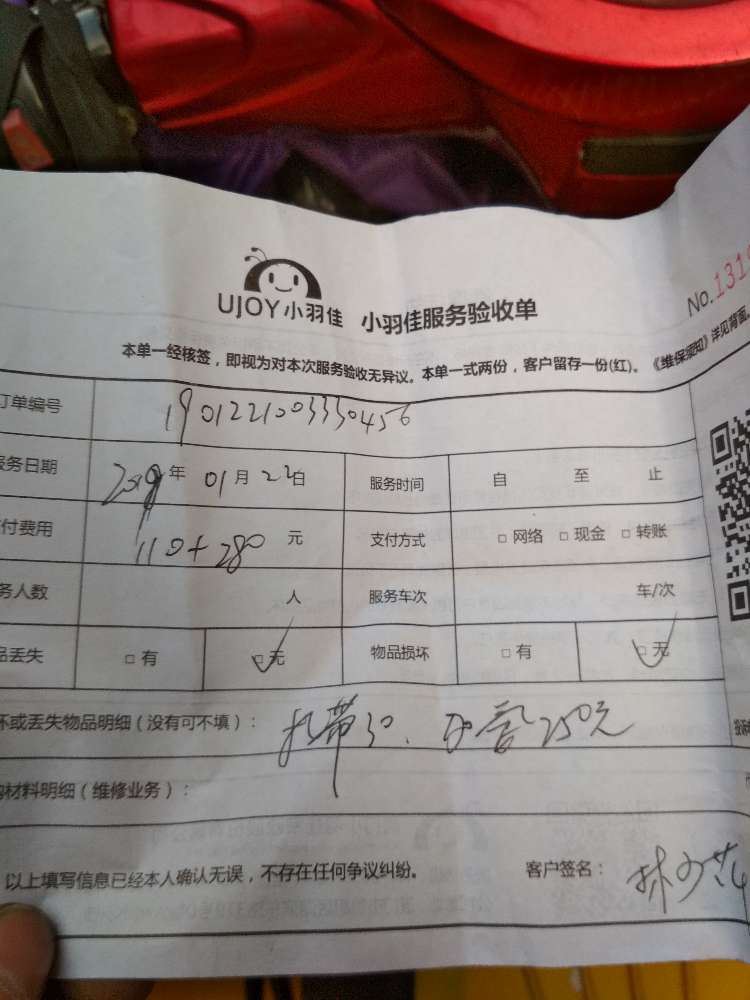 UJOY小羽佳 小羽佳服务验收单
No.1319
本单一经核签，即视为对本次服务验收无异议。本单一式两份，客户留存一份(红)。《维保须知》详见背面。
订单编号 1901221003330456
服务日期 2019年 01月 22日 服务时间 自 至 止
付费用 110+280 元 支付方式 □ 网络 □ 现金 □ 转账
务人数 人 服务车次 车/次
品丢失 □ 有 □ 无 物品损坏 □ 有 □ 无
坏或丢失物品明细（没有可不填）： 扎带30、 250元
材料明细（维修业务）：
以上填写信息已经本人确认无误，不存在任何争议纠纷。 客户签名： 林少